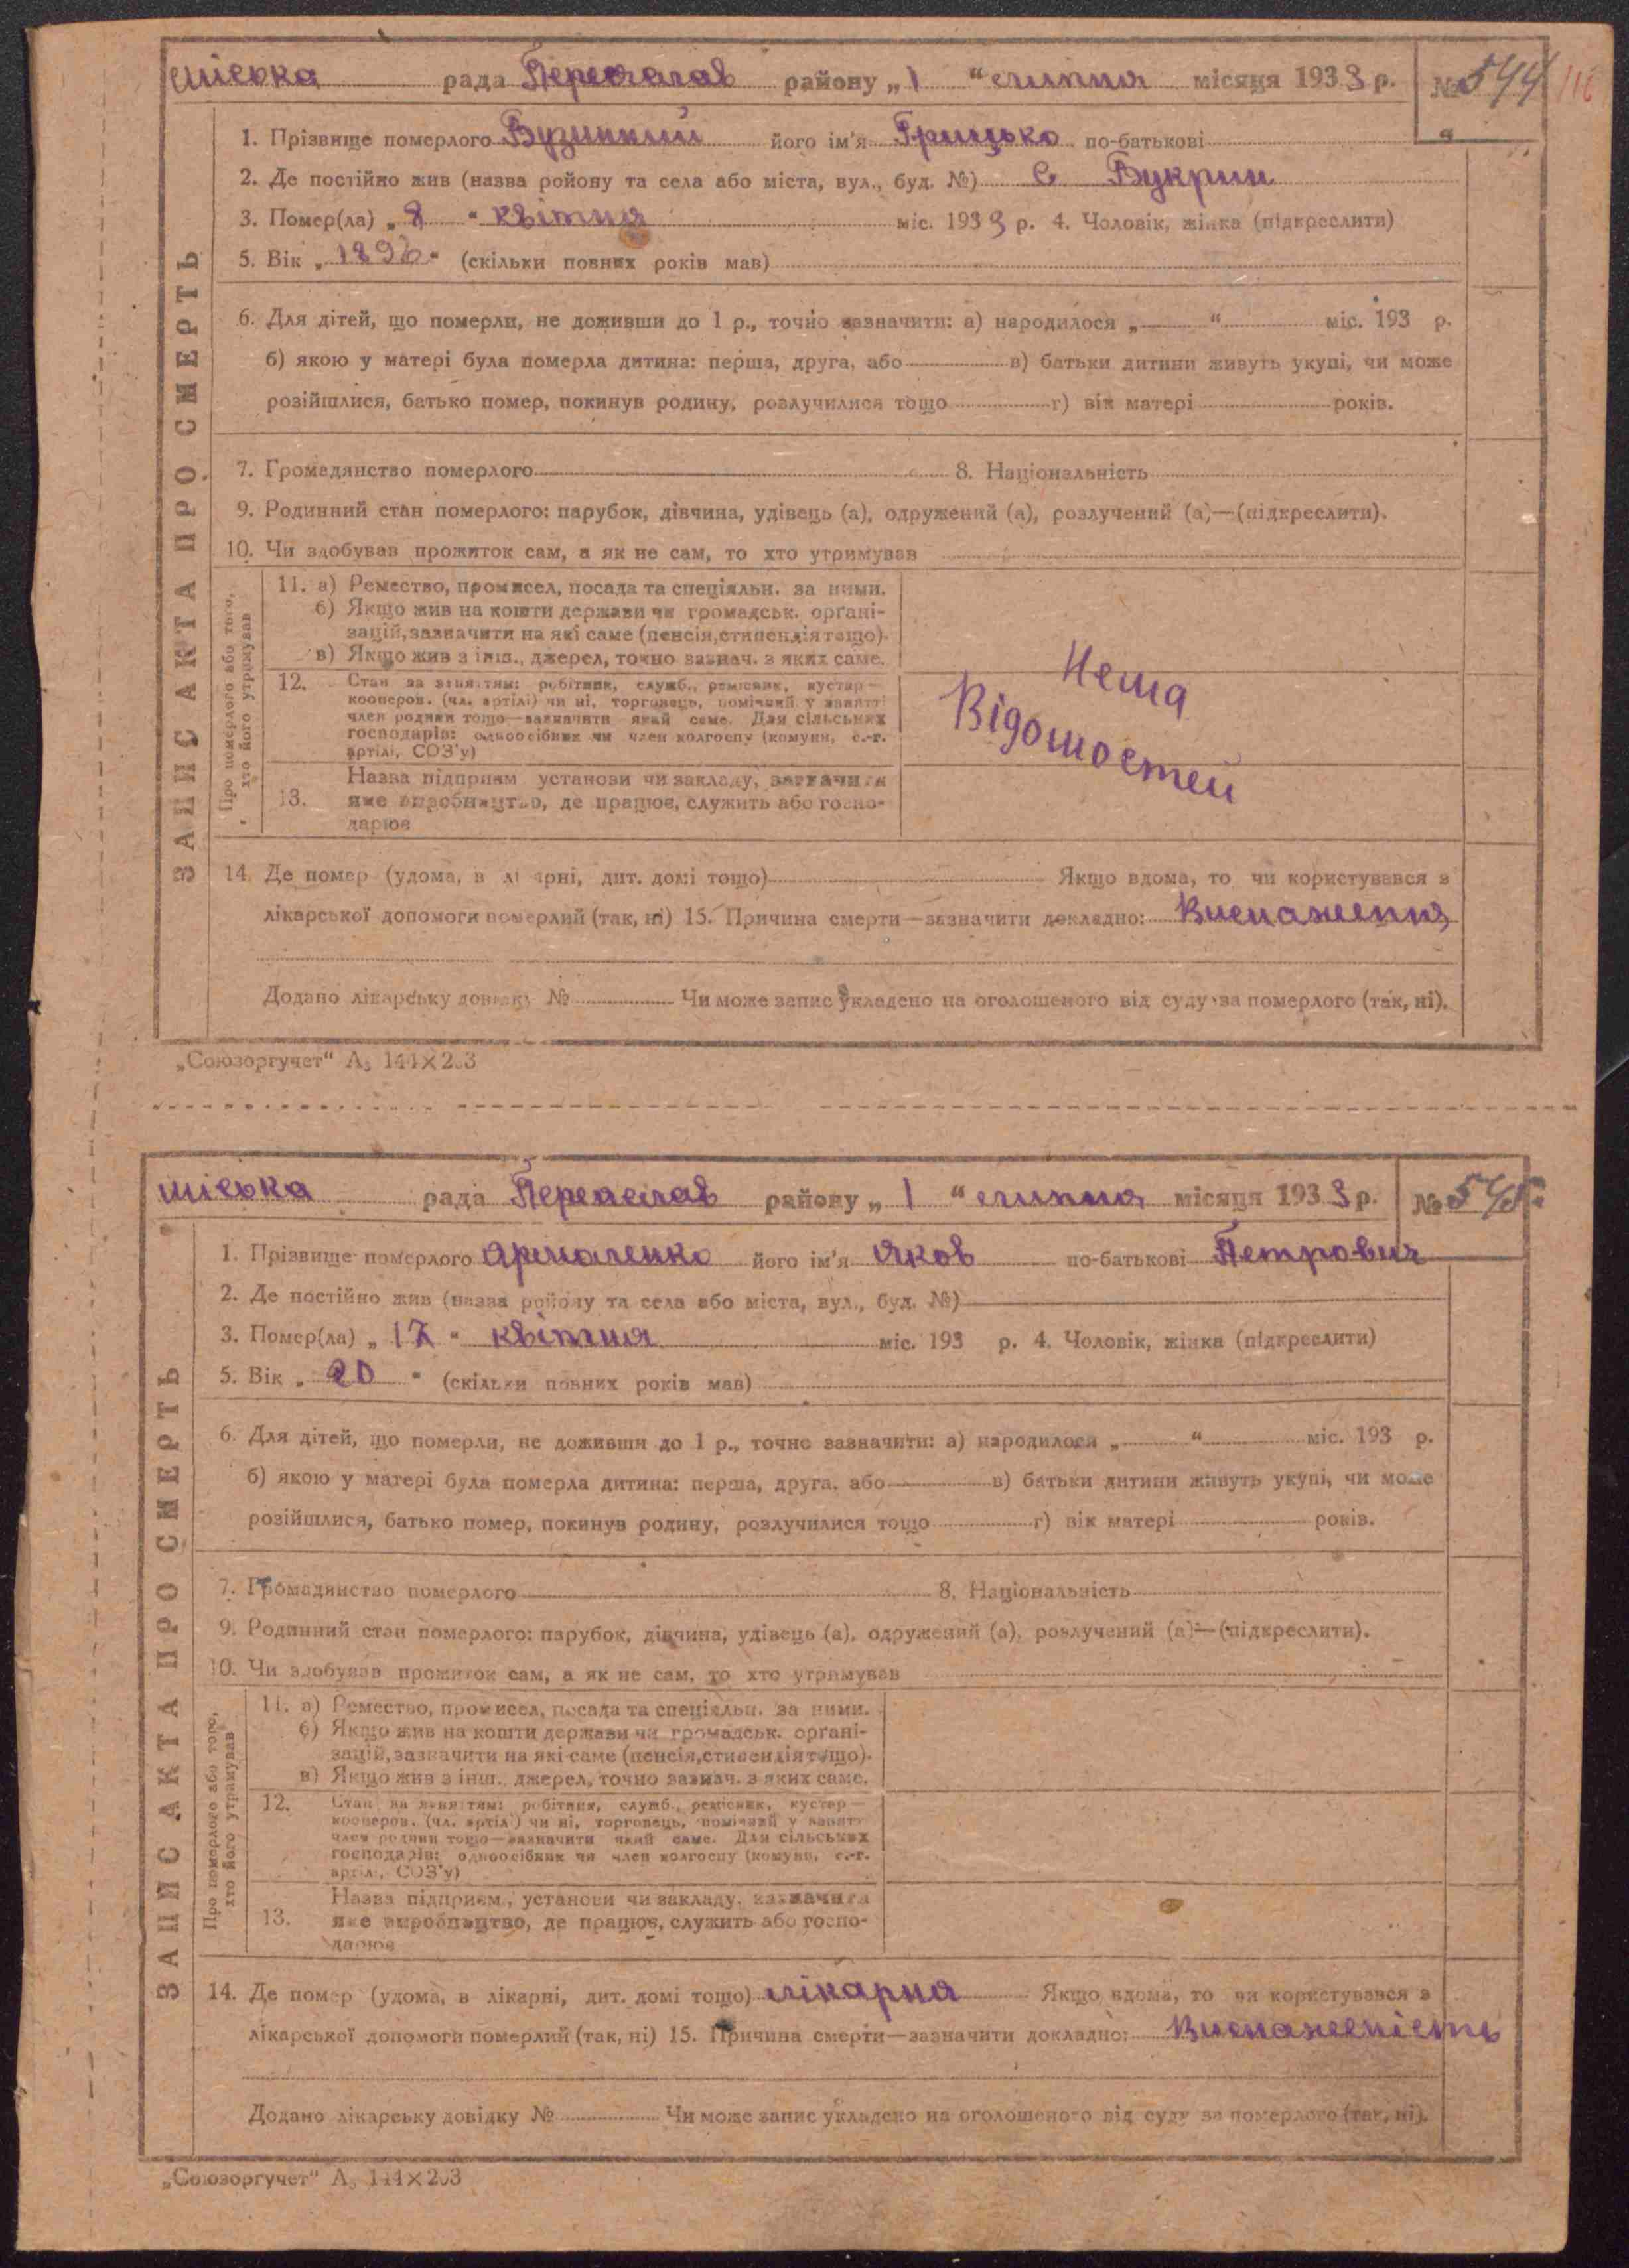 міська рада Переяслав району „ 1 “ липня місяця 1933 р. № 544
116
1. Прізвище померлого Будицкий його ім'я Грицько по-батькові
2. Де постійно жив (назва ройону та села або міста, вул., буд. №) с Букрин
3. Помер(ла) „ 8 “ квітня міс. 1933 р. 4. Чоловік, жінка (підкреслити)
5. Вік „ 1896 “ (скільки повних років мав)
6. Для дітей, що померли, не доживши до 1 р., точно зазначити: а) народилося „ “ міс. 193 р.
б) якою у матері була померла дитина: перша, друга, або в) батьки дитини живуть укупі, чи може
розійшлися, батько помер, покинув родину, розлучилися тощо г) вік матері років.
7. Громадянство померлого 8. Національність
9. Родинний стан померлого: парубок, дівчина, удівець (а), одружений (а), розлучений (а)—(підкреслити).
10. Чи здобував прожиток сам, а як не сам, то хто утримував
ЗАПИС АКТА ПРО СМЕРТЬ
Про померлого або того, хто його утримував
11. а) Ремество, промисел, посада та спеціяльн. за ними.
б) Якщо жив на кошти держави чи громадськ. органі-
зацій, зазначити на які саме (пенсія, стипендія тощо).
в) Якщо жив з інш., джерел, точно зазнач. з яких саме.
12. Стан за заняттям: робітник, служб., ремісник, кустар—
кооперов. (чл. артілі) чи ні, торговець, помічний у занятті
член родини тощо—зазначити який саме. Для сільських
господарів: одноосібник чи член колгоспу (комуни, с.-г.
артілі, СОЗ'у)
13. Назва підприєм установи чи закладу, зазначити
яке виробництво, де працює, служить або госпо-
дарює
Нема
Відомостей
14. Де помер (удома, в лікарні, дит. домі тощо) Якщо вдома, то чи користувався з
лікарської допомоги померлий (так, ні) 15. Причина смерти—зазначити докладно: Виснаження
Додано лікарську довідку № Чи може запис укладено на оголошеного від суду за померлого (так, ні).
„Союзоргучет“ А₅ 144×203
міська рада Переяслав району „ 1 “ липня місяця 1933 р. № 545
1. Прізвище померлого Ярмоленко його ім'я Яков по-батькові Петрович
2. Де постійно жив (назва ройону та села або міста, вул., буд. №)
3. Помер(ла) „ 17 “ квітня міс. 193 р. 4. Чоловік, жінка (підкреслити)
5. Вік „ 20 “ (скільки повних років мав)
6. Для дітей, що померли, не доживши до 1 р., точно зазначити: а) народилося „ “ міс. 193 р.
б) якою у матері була померла дитина: перша, друга, або в) батьки дитини живуть укупі, чи може
розійшлися, батько помер, покинув родину, розлучилися тощо г) вік матері років.
7. Громадянство померлого 8. Національність
9. Родинний стан померлого: парубок, дівчина, удівець (а), одружений (а), розлучений (а)—(підкреслити).
10. Чи здобував прожиток сам, а як не сам, то хто утримував
ЗАПИС АКТА ПРО СМЕРТЬ
Про померлого або того, хто його утримував
11. а) Ремество, промисел, посада та спеціяльн. за ними.
б) Якщо жив на кошти держави чи громадськ. органі-
зацій, зазначити на які саме (пенсія, стипендія тощо).
в) Якщо жив з інш., джерел, точно зазнач. з яких саме.
12. Стан за заняттям: робітник, служб., ремісник, кустар—
кооперов. (чл. артілі) чи ні, торговець, помічний у занятті
член родини тощо—зазначити який саме. Для сільських
господарів: одноосібник чи член колгоспу (комуни, с.-г.
артілі, СОЗ'у)
13. Назва підприєм., установи чи закладу, зазначити
яке виробництво, де працює, служить або госпо-
дарює
14. Де помер (удома, в лікарні, дит. домі тощо) лікарня Якщо вдома, то чи користувався з
лікарської допомоги померлий (так, ні) 15. Причина смерти—зазначити докладно: Виснаженість
Додано лікарську довідку № Чи може запис укладено на оголошеного від суду за померлого (так, ні).
„Союзоргучет“ А₅ 144×203